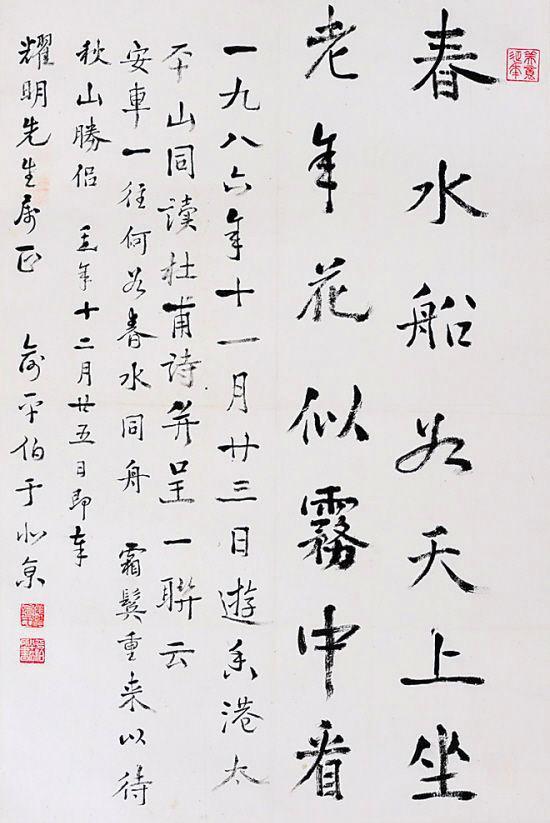 美意延年
春水船若天上坐
老年花似霧中看
一九八六年十一月廿三日遊香港太
平山同讀杜甫詩并呈一聯云
安車一往何若春水同舟 霜鬢重来以待
秋山勝侣 年十二月廿五日即奉
耀明先生属正 俞平伯于北京